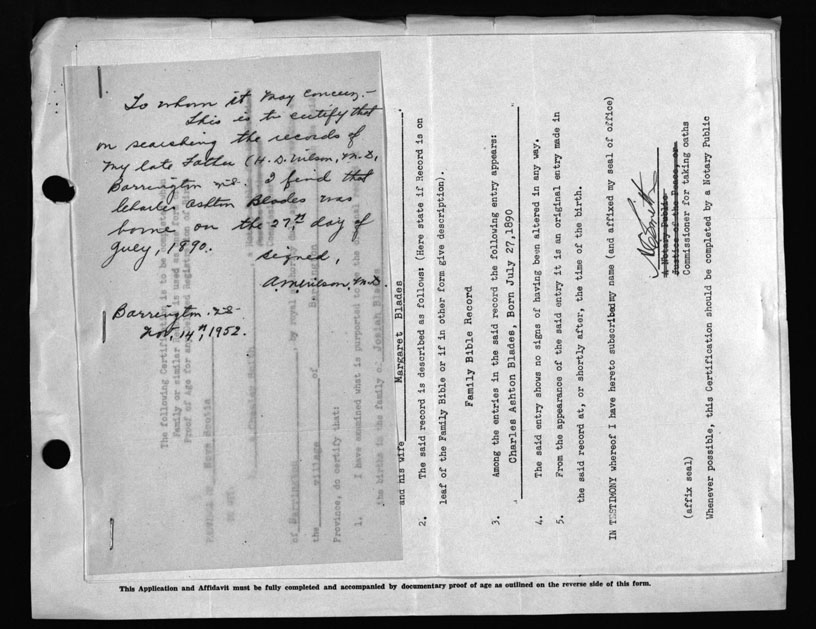 To whom it May Concern:-
This is to certify that
on searching the records of
My late Father (H. D. Wilson, M.D,
Barrington N.S. I find that
Charles Ashton Blades was
borne on the 27th day of
July, 1890.
Signed,
Wilson, M.D.
Barrington. N.S-
Nov. 14th, 1952.
The following Certificate is to be
Family or similar is used as
Proof of Age for
Nova Scotia
of
the village of
Province, do certify that:
1. I have examined what is purported to be the original
the births in the family of Josiah
and his wife Margaret Blades.
2. The said record is described as follows: (Here state if Record is on
leaf of the Family Bible or if in other form give description).
Family Bible Record
3. Among the entries in the said record the following entry appears:
Charles Ashton Blades, Born July 27,1890
4. The said entry shows no signs of having been altered in any way.
5. From the appearance of the said entry it is an original entry made in
the said record at, or shortly after, the time of the birth.
IN TESTIMONY whereof I have hereto subscribed my name (and affixed my seal of office)
A Notary Public
Justice of the Peace, or
Commissioner for taking oaths
(affix seal)
Whenever possible, this Certification should be completed by a Notary Public
This Application and Affidavit must be fully completed and accompanied by documentary proof of age as outlined on the reverse side of this form.